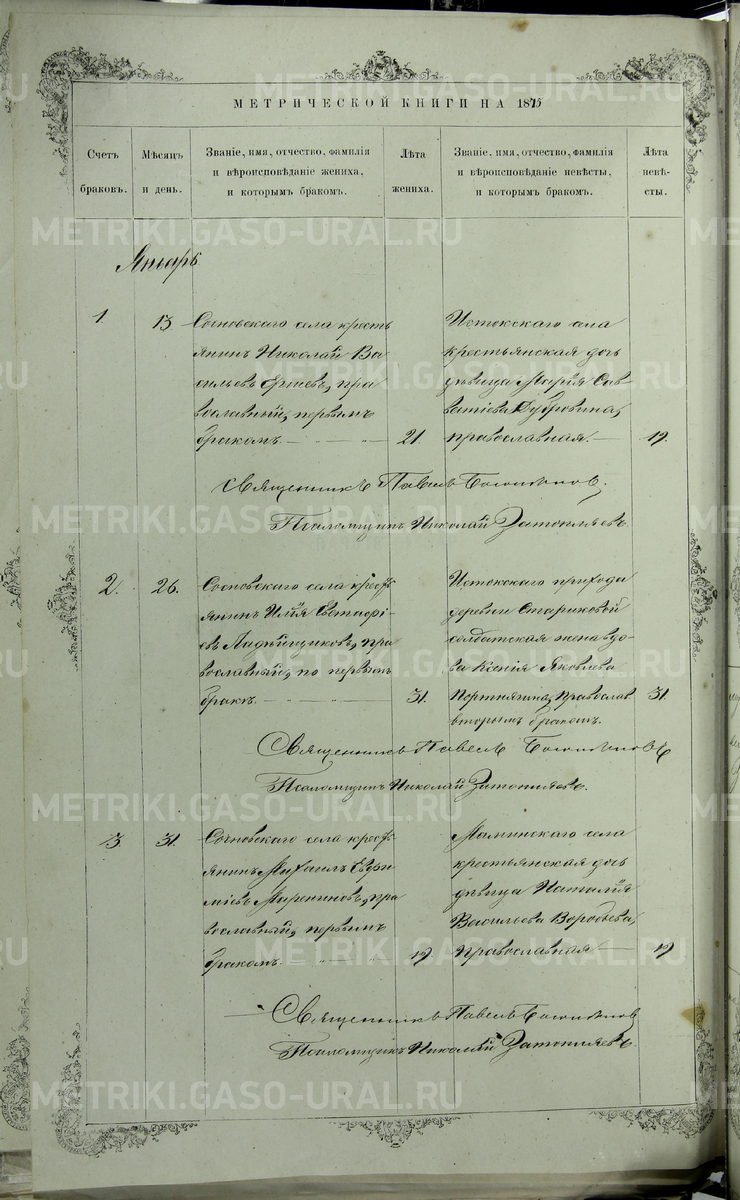 МЕТРИЧЕСКОЙ КНИГИ НА 1875
Счетъ браковъ.
Мѣсяцъ и день.
Званіе, имя, отчество, фамилія
и вѣроисповѣданіе жениха,
и которымъ бракомъ.
Лѣта жениха.
Званіе, имя, отчество, фамилія
и вѣроисповѣданіе невѣсты,
и которымъ бракомъ.
Лѣта невѣ-
сты.
Январь
1. 13
Сосновскаго села кресть
янинъ Николай Ва
сильевъ православный, первымъ
бракомъ. 21.
Истокскаго села
крестьянская дочь
дѣвица Марія Сав
ватіева Дубровина,
православная. 19.
Священникъ Павелъ
Псаломщикъ Николай
2. 26.
Сосновскаго села кресть
янинъ Илія Евстафі
евъ пра
вославный, по первому
браку. 31.
Истокскаго прихода
деревни Стариковой
солдатская жена вдо
ва Ксенія Яковлева
Портнягина, православ
вторымъ бракомъ. 31.
Священникъ Павелъ
Псаломщикъ Николай
3 31.
Сосновскаго села кресть
янинъ Михаилъ Евфи
міевъ пра
вославный, первымъ
бракомъ. 19
Маминскаго села
крестьянская дочь
дѣвица Наталія
Васильева Воробьева,
православная 19
Священникъ Павелъ
Псаломщикъ Николай
METRIKI.GASO-URAL.RU